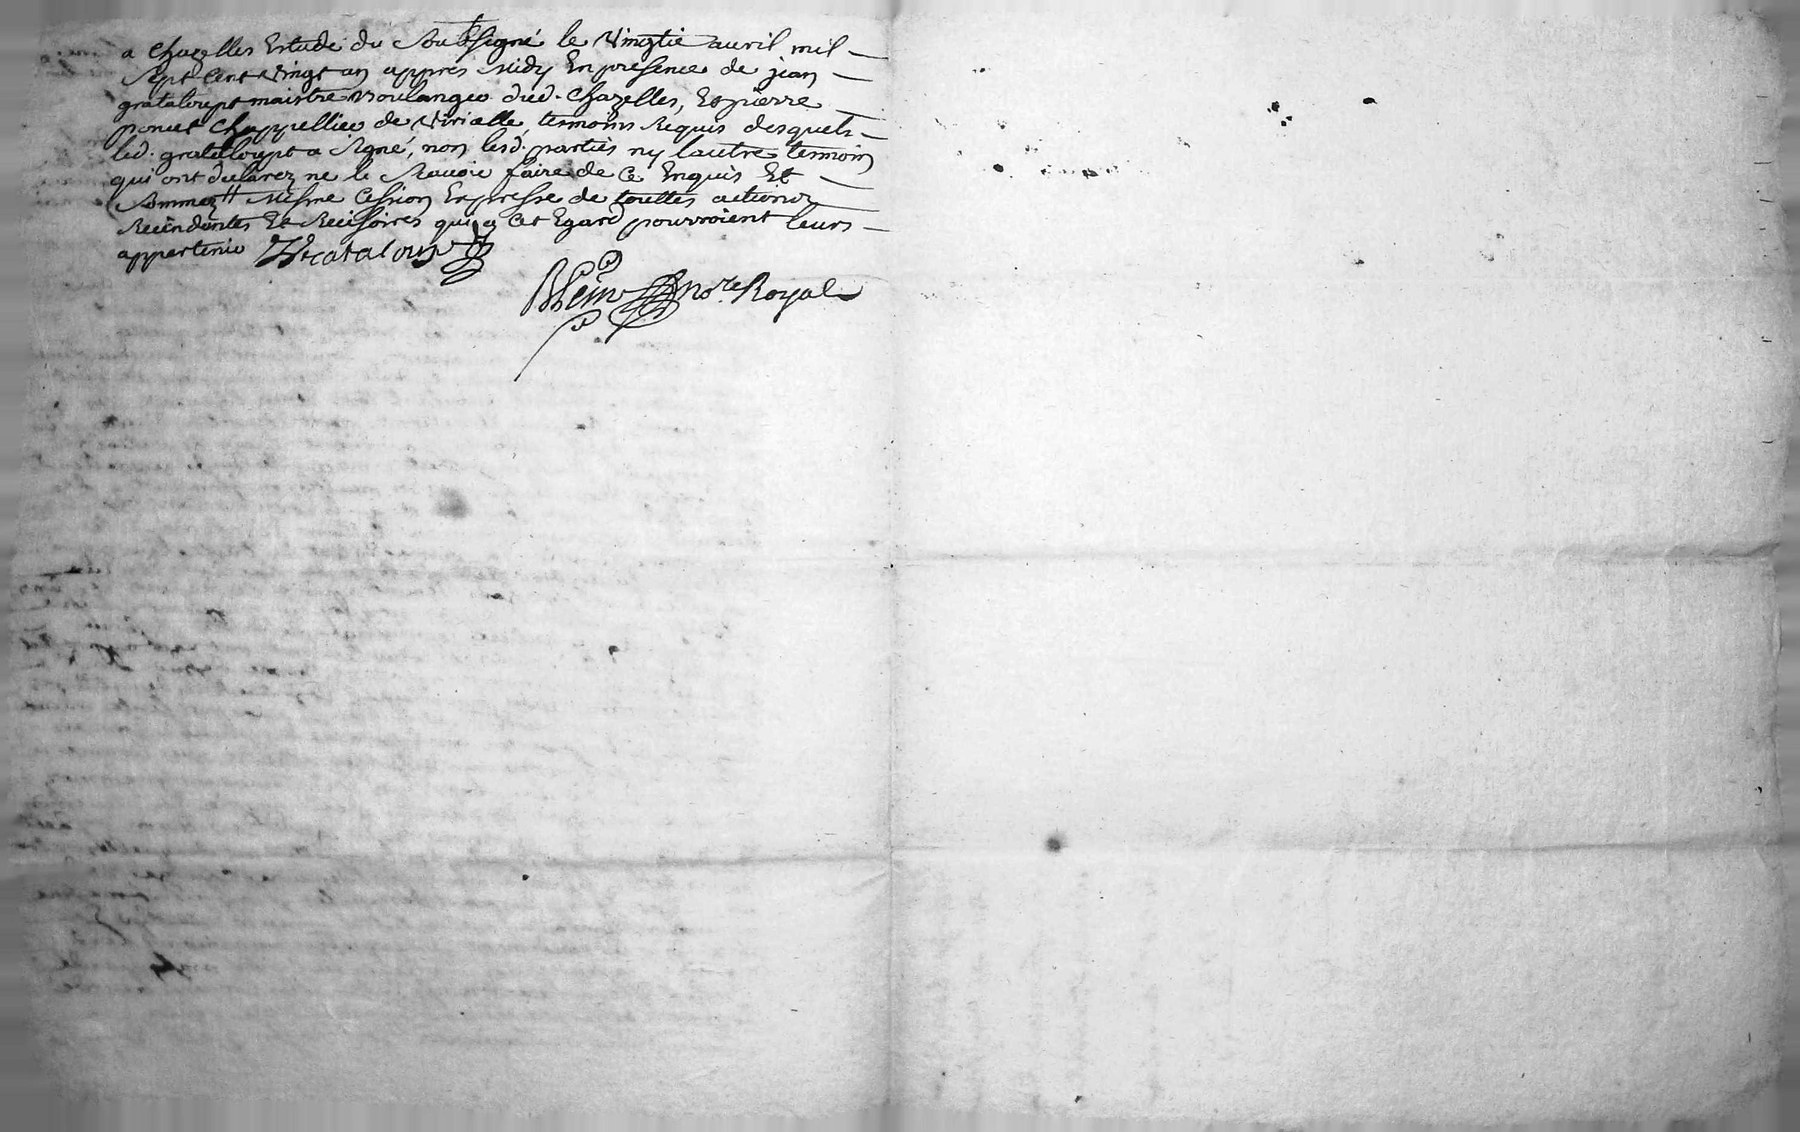 a Chazelles Estude du Soubsigné le vingtie auril mil
sept cent vingt un appres midy En presence de jean
grataloupt maistre boulanger dud. Chazelles, Et pierre
poncet Chappellier de Viricelle, tesmoins Requis desquels
led. grataloupt a signé, non lesd. parties ny lautre tesmoin
qui ont declarez ne le sauoir faire de ce Enquis Et
sommez mesme Cession Expresse de touttes actions
Recindentes Et Recissoires qui a Cet Egard pourroient leurs
appartenir Grataloup
no.re Royal